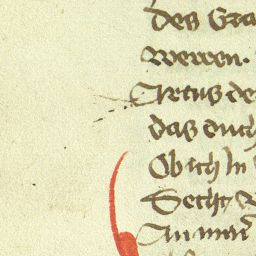 des Gra
werren.
Artus de
das euch
Ob ich in
Secht